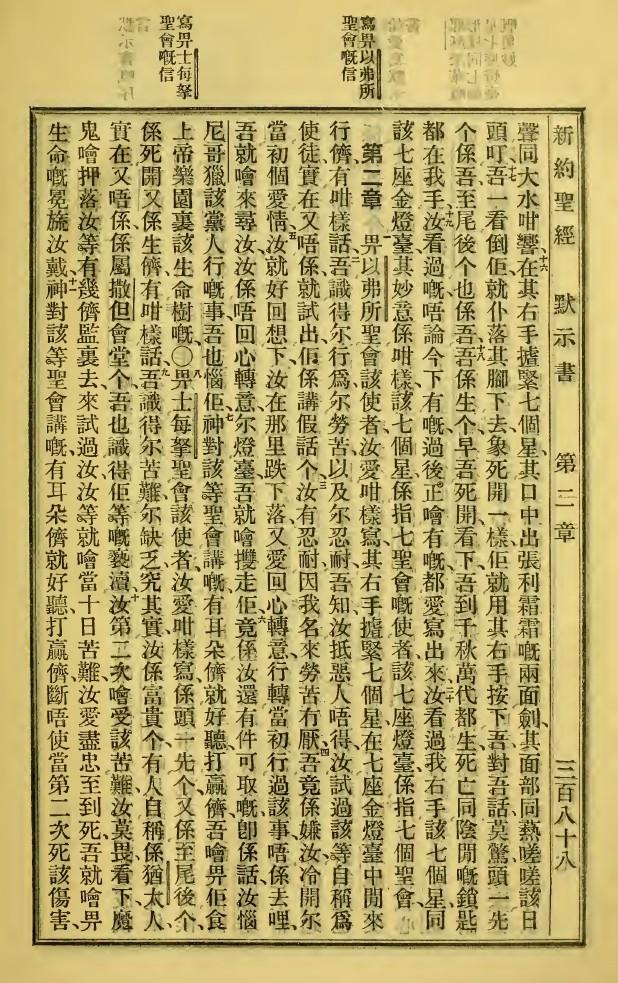 新約聖經 默示書 第二章 三百八十八
寫畀以弗所
聖會嘅信
寫畀士每拏
聖會嘅信
聲同大水咁響、十六在其右手揸緊七個星、其口中出張利霜霜嘅兩面劍、其面部同熱嗟嗟該日
頭叮、十七吾一看倒佢、就仆落其腳下去、象死開一樣、佢就用其右手按下吾、對吾話、莫驚、頭一先
个係吾、至尾後个也係吾、十八吾係生个、早吾死開、看下、吾到千秋萬代都生、死亡同陰間嘅鎖匙、
都在我手、十九汝看過嘅、唔論今下有嘅、過後正噲有嘅、都愛寫出來、二十汝看過我右手該七個星、同
該七座金燈臺、其妙意係咁樣、該七個星、係指七聖會嘅使者、該七座燈臺、係指七個聖會、
第二章 一畀以弗所聖會該使者、汝愛咁樣寫、其右手揸緊七個星、在七座金燈臺中間來
行儕、有咁樣話、二吾識得尔行爲、尔勞苦、以及尔忍耐、吾知汝抵惡人唔得、汝試過該等自稱爲
使徒、實在又唔係、就試出佢係講假話个、三汝有忍耐、因我名來勞苦冇厭、四吾竟係嫌汝冷開尔
當初個愛情、五汝就好回想下、汝在那里跌下落、又愛回心轉意、行轉當初行過該事、唔係去哩、
吾就噲來尋汝、汝係唔回心轉意、尔燈臺吾就噲㩳走佢、六竟係汝還有件可取嘅、卽係話汝惱
尼哥獵該黨人行嘅事、吾也惱佢、七神對該等聖會講嘅、有耳朵儕、就好聽、打贏儕、吾噲畀佢食
上帝樂園裏該生命樹嘅、〇八畀士每拏聖會該使者、汝愛咁樣寫、係頭一先个、又係至尾後个、
係死開又係生儕、有咁樣話、九吾識得尔苦難、尔缺乏、究其實汝係富貴个、有人自稱係猶太人、
實在又唔係、係屬撒但會堂个、吾也識得佢等嘅褻瀆、十汝第二次噲受該苦難、汝莫畏、看下、魔
鬼噲押落汝等有幾儕監裏去、來試過汝、汝等就噲當十日苦難、汝愛盡忠至到死、吾就噲畀
生命嘅冕旒汝戴、十一神對該等聖會講嘅、有耳朵儕、就好聽、打贏儕、斷唔使當第二次死該傷害、